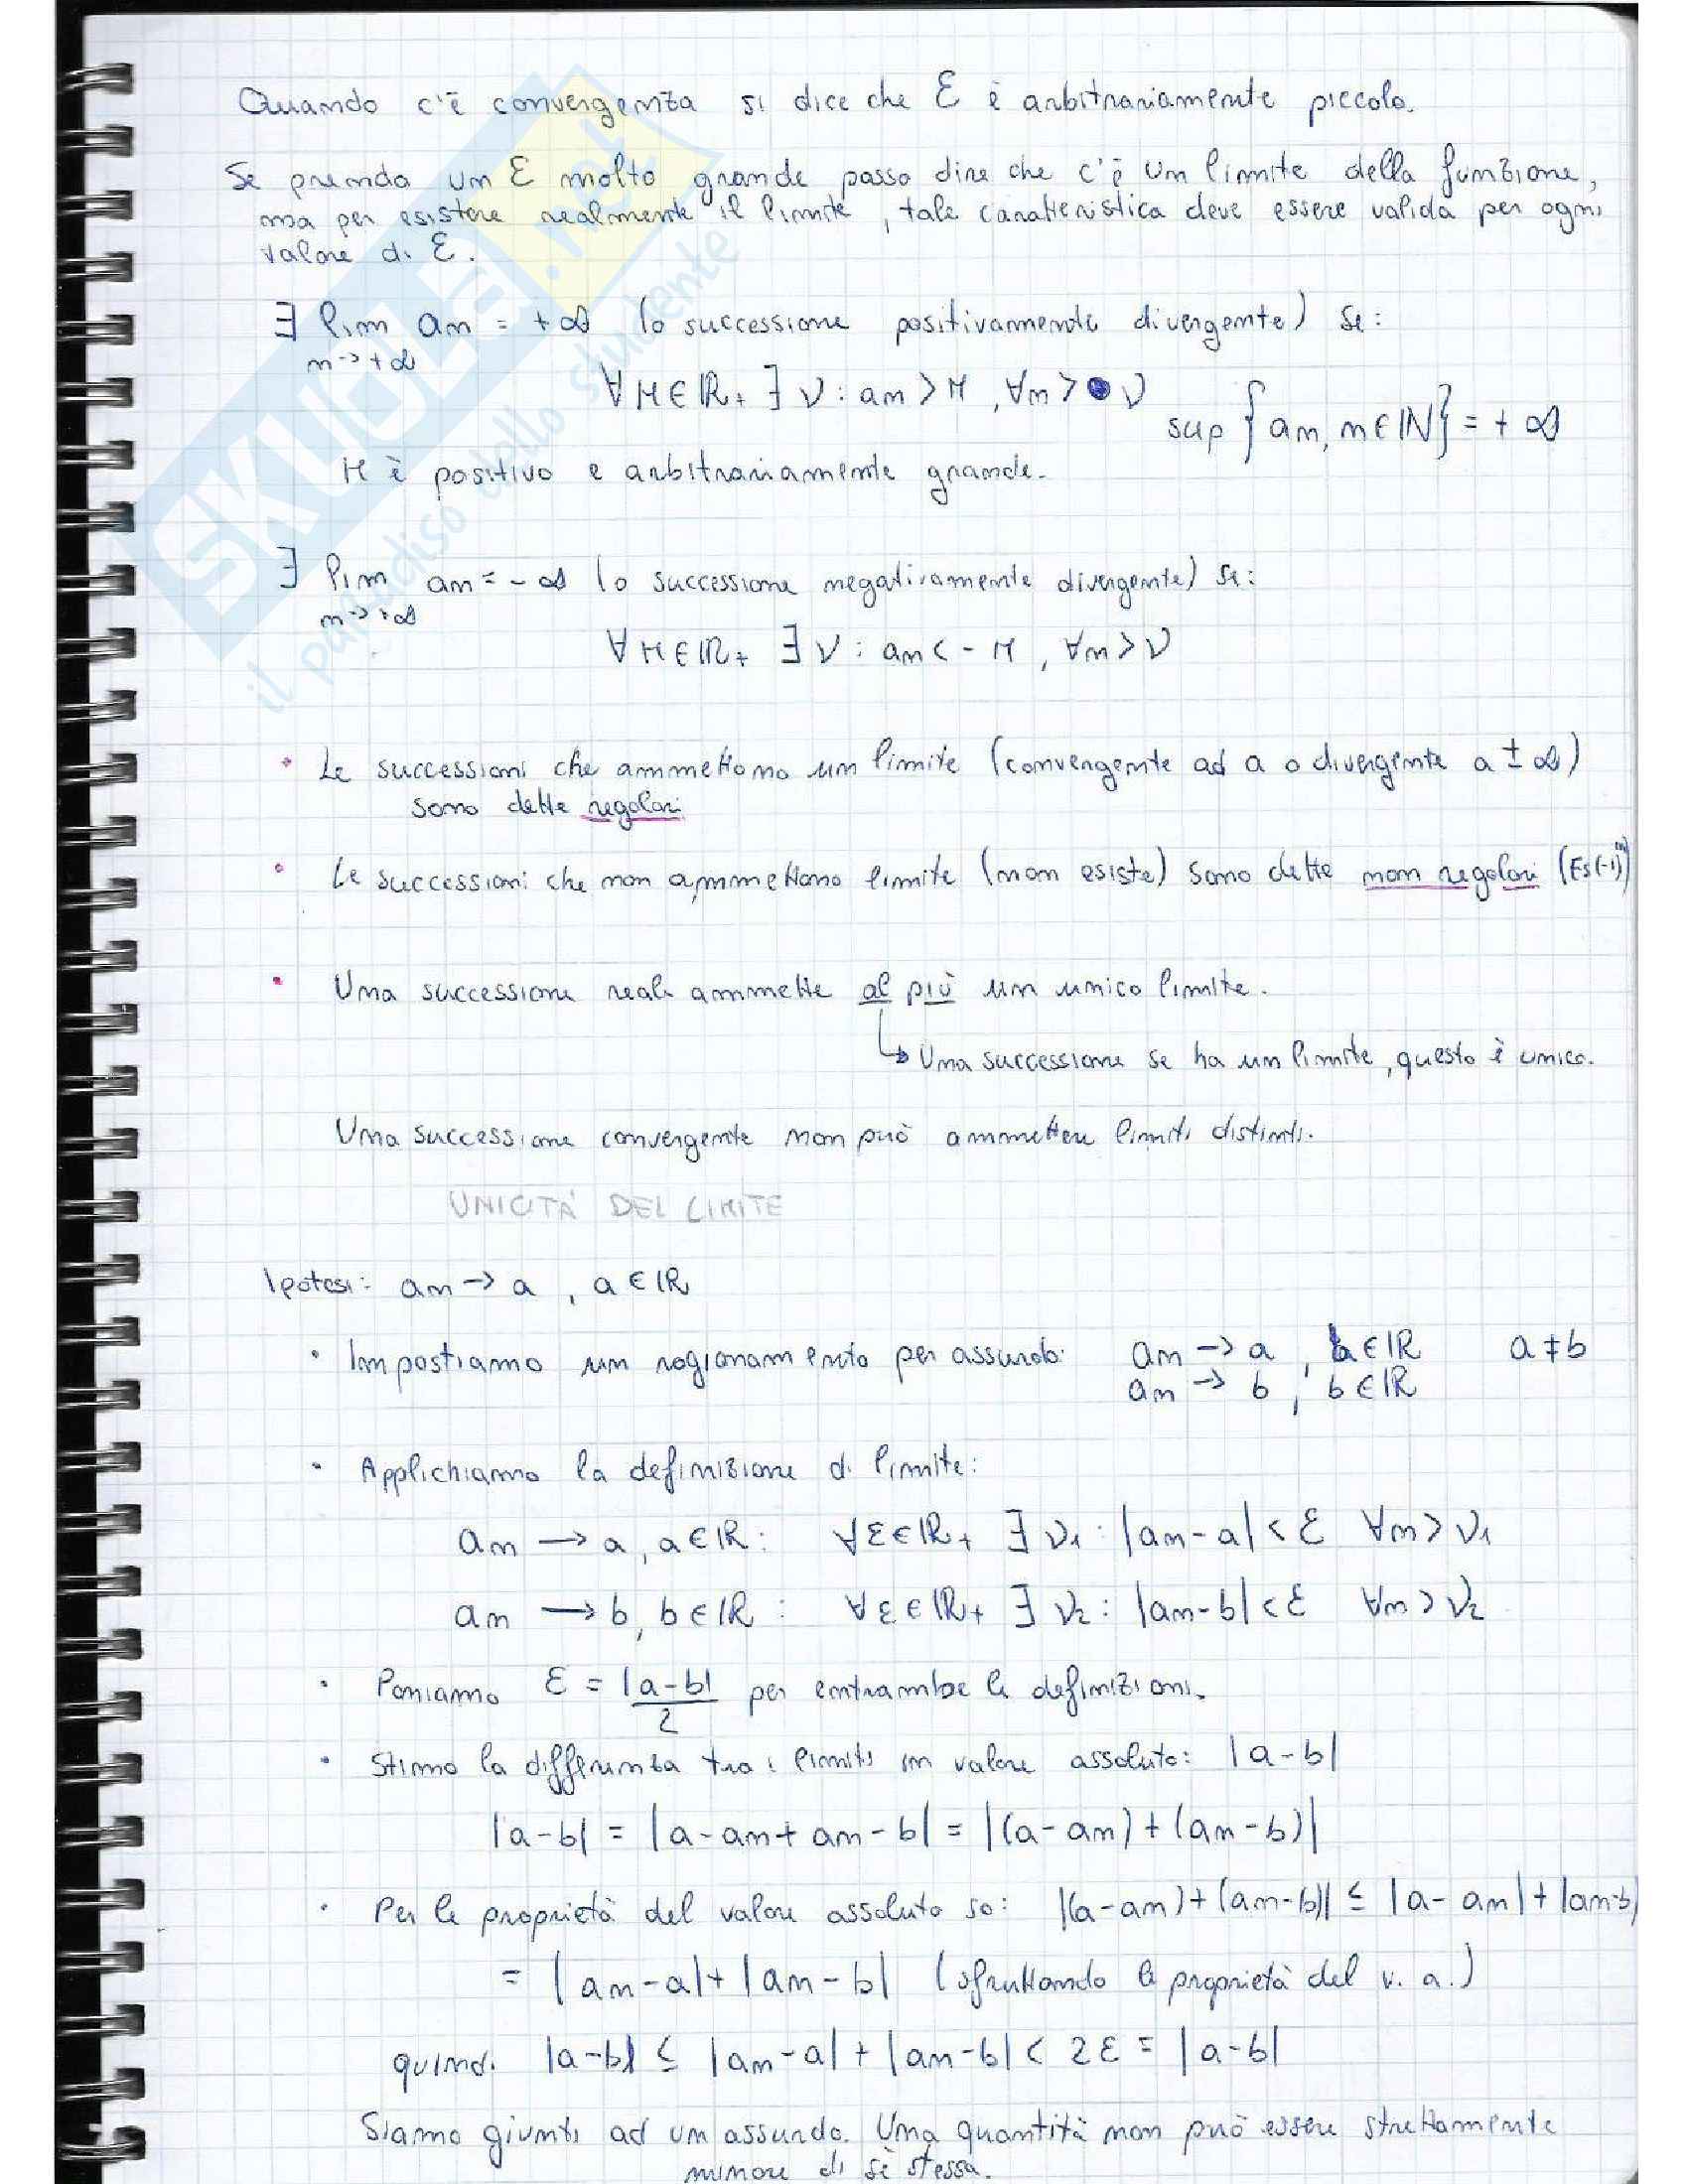 Quando c'è convergenza si dice che ε è arbitrariamente piccolo.
Se prendo un ε molto grande posso dire che c'è un limite della funzione,
ma per esistere realmente il limite, tale caratteristica deve essere valida per ogni
valore di ε.
∃ lim an = +∞ (o successione positivamente divergente) se:
n→+∞
∀M∈ℝ+ ∃ ν : an > M , ∀n > ν
sup { an, n∈ℕ } = +∞
M è positivo e arbitrariamente grande.
∃ lim an = -∞ (o successione negativamente divergente) se:
n→+∞
∀M∈ℝ+ ∃ ν : an < -M , ∀n > ν
• Le successioni che ammettono un limite (convergente ad a o divergente a ±∞)
sono dette regolari
• Le successioni che non ammettono limite (non esiste) sono dette non regolari (Es(-1)ⁿ)
• Una successione reale ammette al più un unico limite.
↳ Una successione se ha un limite, questo è unico.
Una successione convergente non può ammettere limiti distinti.
UNICITÀ DEL LIMITE
Ipotesi: an → a , a∈ℝ
• Impostiamo un ragionamento per assurdo: an → a , a∈ℝ a≠b
an → b , b∈ℝ
• Applichiamo la definizione di limite:
an → a, a∈ℝ : ∀ε∈ℝ+ ∃ ν1 : |an-a| < ε ∀n > ν1
an → b, b∈ℝ : ∀ε∈ℝ+ ∃ ν2 : |an-b| < ε ∀n > ν2
• Poniamo ε = |a-b|/2 per entrambe le definizioni.
• Stimo la differenza tra i limiti in valore assoluto: |a-b|
|a-b| = |a-an+an-b| = |(a-an)+(an-b)|
• Per le proprietà del valore assoluto so: |(a-an)+(an-b)| ≤ |a-an|+|an-b|
= |an-a|+|an-b| (sfruttando le proprietà del v. a.)
quindi |a-b| ≤ |an-a|+|an-b| < 2ε = |a-b|
Siamo giunti ad un assurdo. Una quantità non può essere strettamente
minore di sè stessa.
SKUOLA.net
il paradiso dello studente